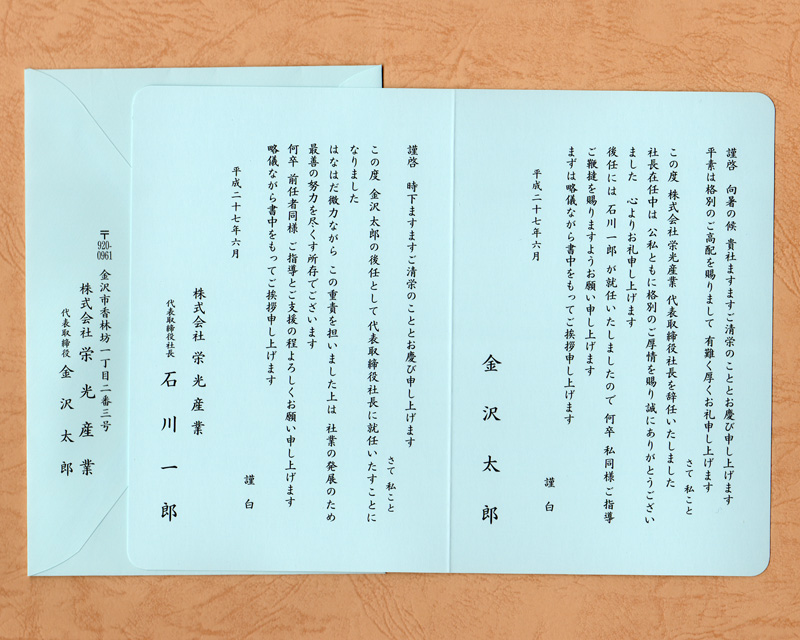 謹啓 向暑の候 貴社ますますご清栄のこととお慶び申し上げます
平素は格別のご高配を賜りまして 有難く厚くお礼申し上げます
さて 私こと
この度 株式会社栄光産業 代表取締役社長を辞任いたしました
社長在任中は 公私ともに格別のご厚情を賜り誠にありがとうござい
ました 心よりお礼申し上げます
後任には 石川一郎 が就任いたしましたので 何卒 私同様ご指導
ご鞭撻を賜りますようお願い申し上げます
まずは略儀ながら書中をもってご挨拶申し上げます
謹白
平成二十七年六月
金沢太郎
謹啓 時下ますますご清栄のこととお慶び申し上げます
さて 私こと
この度 金沢太郎の後任として 代表取締役社長に就任いたすことに
なりました
はなはだ微力ながら この重責を担いました上は 社業の発展のため
最善の努力を尽くす所存でございます
何卒 前任者同様 ご指導とご支援の程よろしくお願い申し上げます
略儀ながら書中をもってご挨拶申し上げます
謹白
平成二十七年六月
株式会社 栄光産業
代表取締役社長 石川一郎
〒920-0961 金沢市香林坊一丁目二番三号
株式会社 栄光産業
代表取締役 金沢太郎